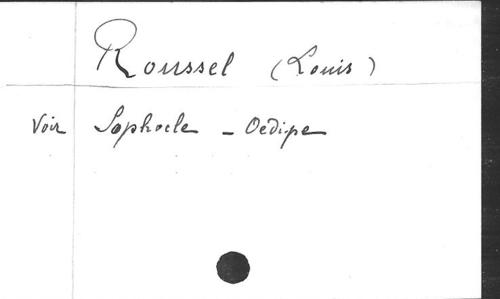 Roussel (Louis)
Voir Sophocle - Oedipe